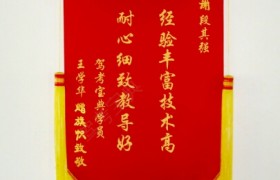 谢段其强
经验丰富技术高
耐心细致教导好
驾考宝典学员
王学华
致敬